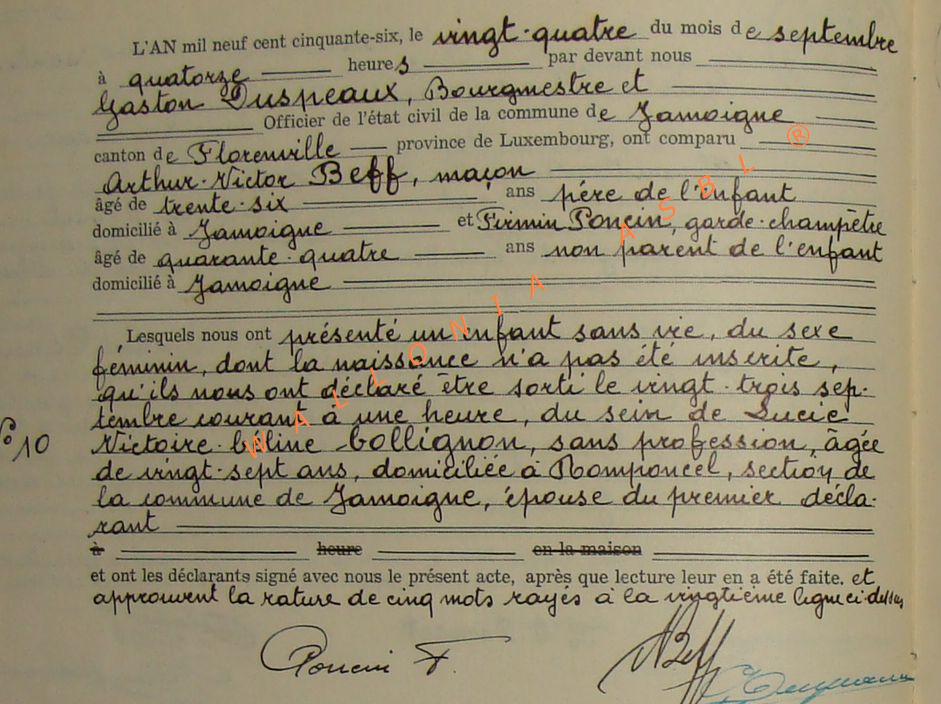 L'AN mil neuf cent cinquante-six, le vingt-quatre du mois de septembre
à quatorze heures par devant nous
Gaston Duspeaux, Bourgmestre et
Officier de l'état civil de la commune de Jamoigne
canton de Florenville province de Luxembourg, ont comparu
Arthur-Victor Beff, maçon
âgé de trente-six ans père de l'enfant
domicilié à Jamoigne et Firmin Poncin, garde-champêtre
âgé de quarante-quatre ans non parent de l'enfant
domicilié à Jamoigne
Lesquels nous ont présenté un enfant sans vie, du sexe
féminin, dont la naissance n'a pas été inscrite,
qu'ils nous ont déclaré être sorti le vingt-trois sep-
tembre courant à une heure, du sein de Lucie
No 10 Victoire-Céline Collignon, sans profession, âgée
de vingt-sept ans, domiciliée à Romponcel, section de
la commune de Jamoigne, épouse du premier décla-
rant
à heure en la maison
et ont les déclarants signé avec nous le présent acte, après que lecture leur en a été faite. et
approuvent la rature de cinq mots rayés à la vingtième ligne ci-dessus
Poncin F. ABeff
WALLONIA ASBL ®